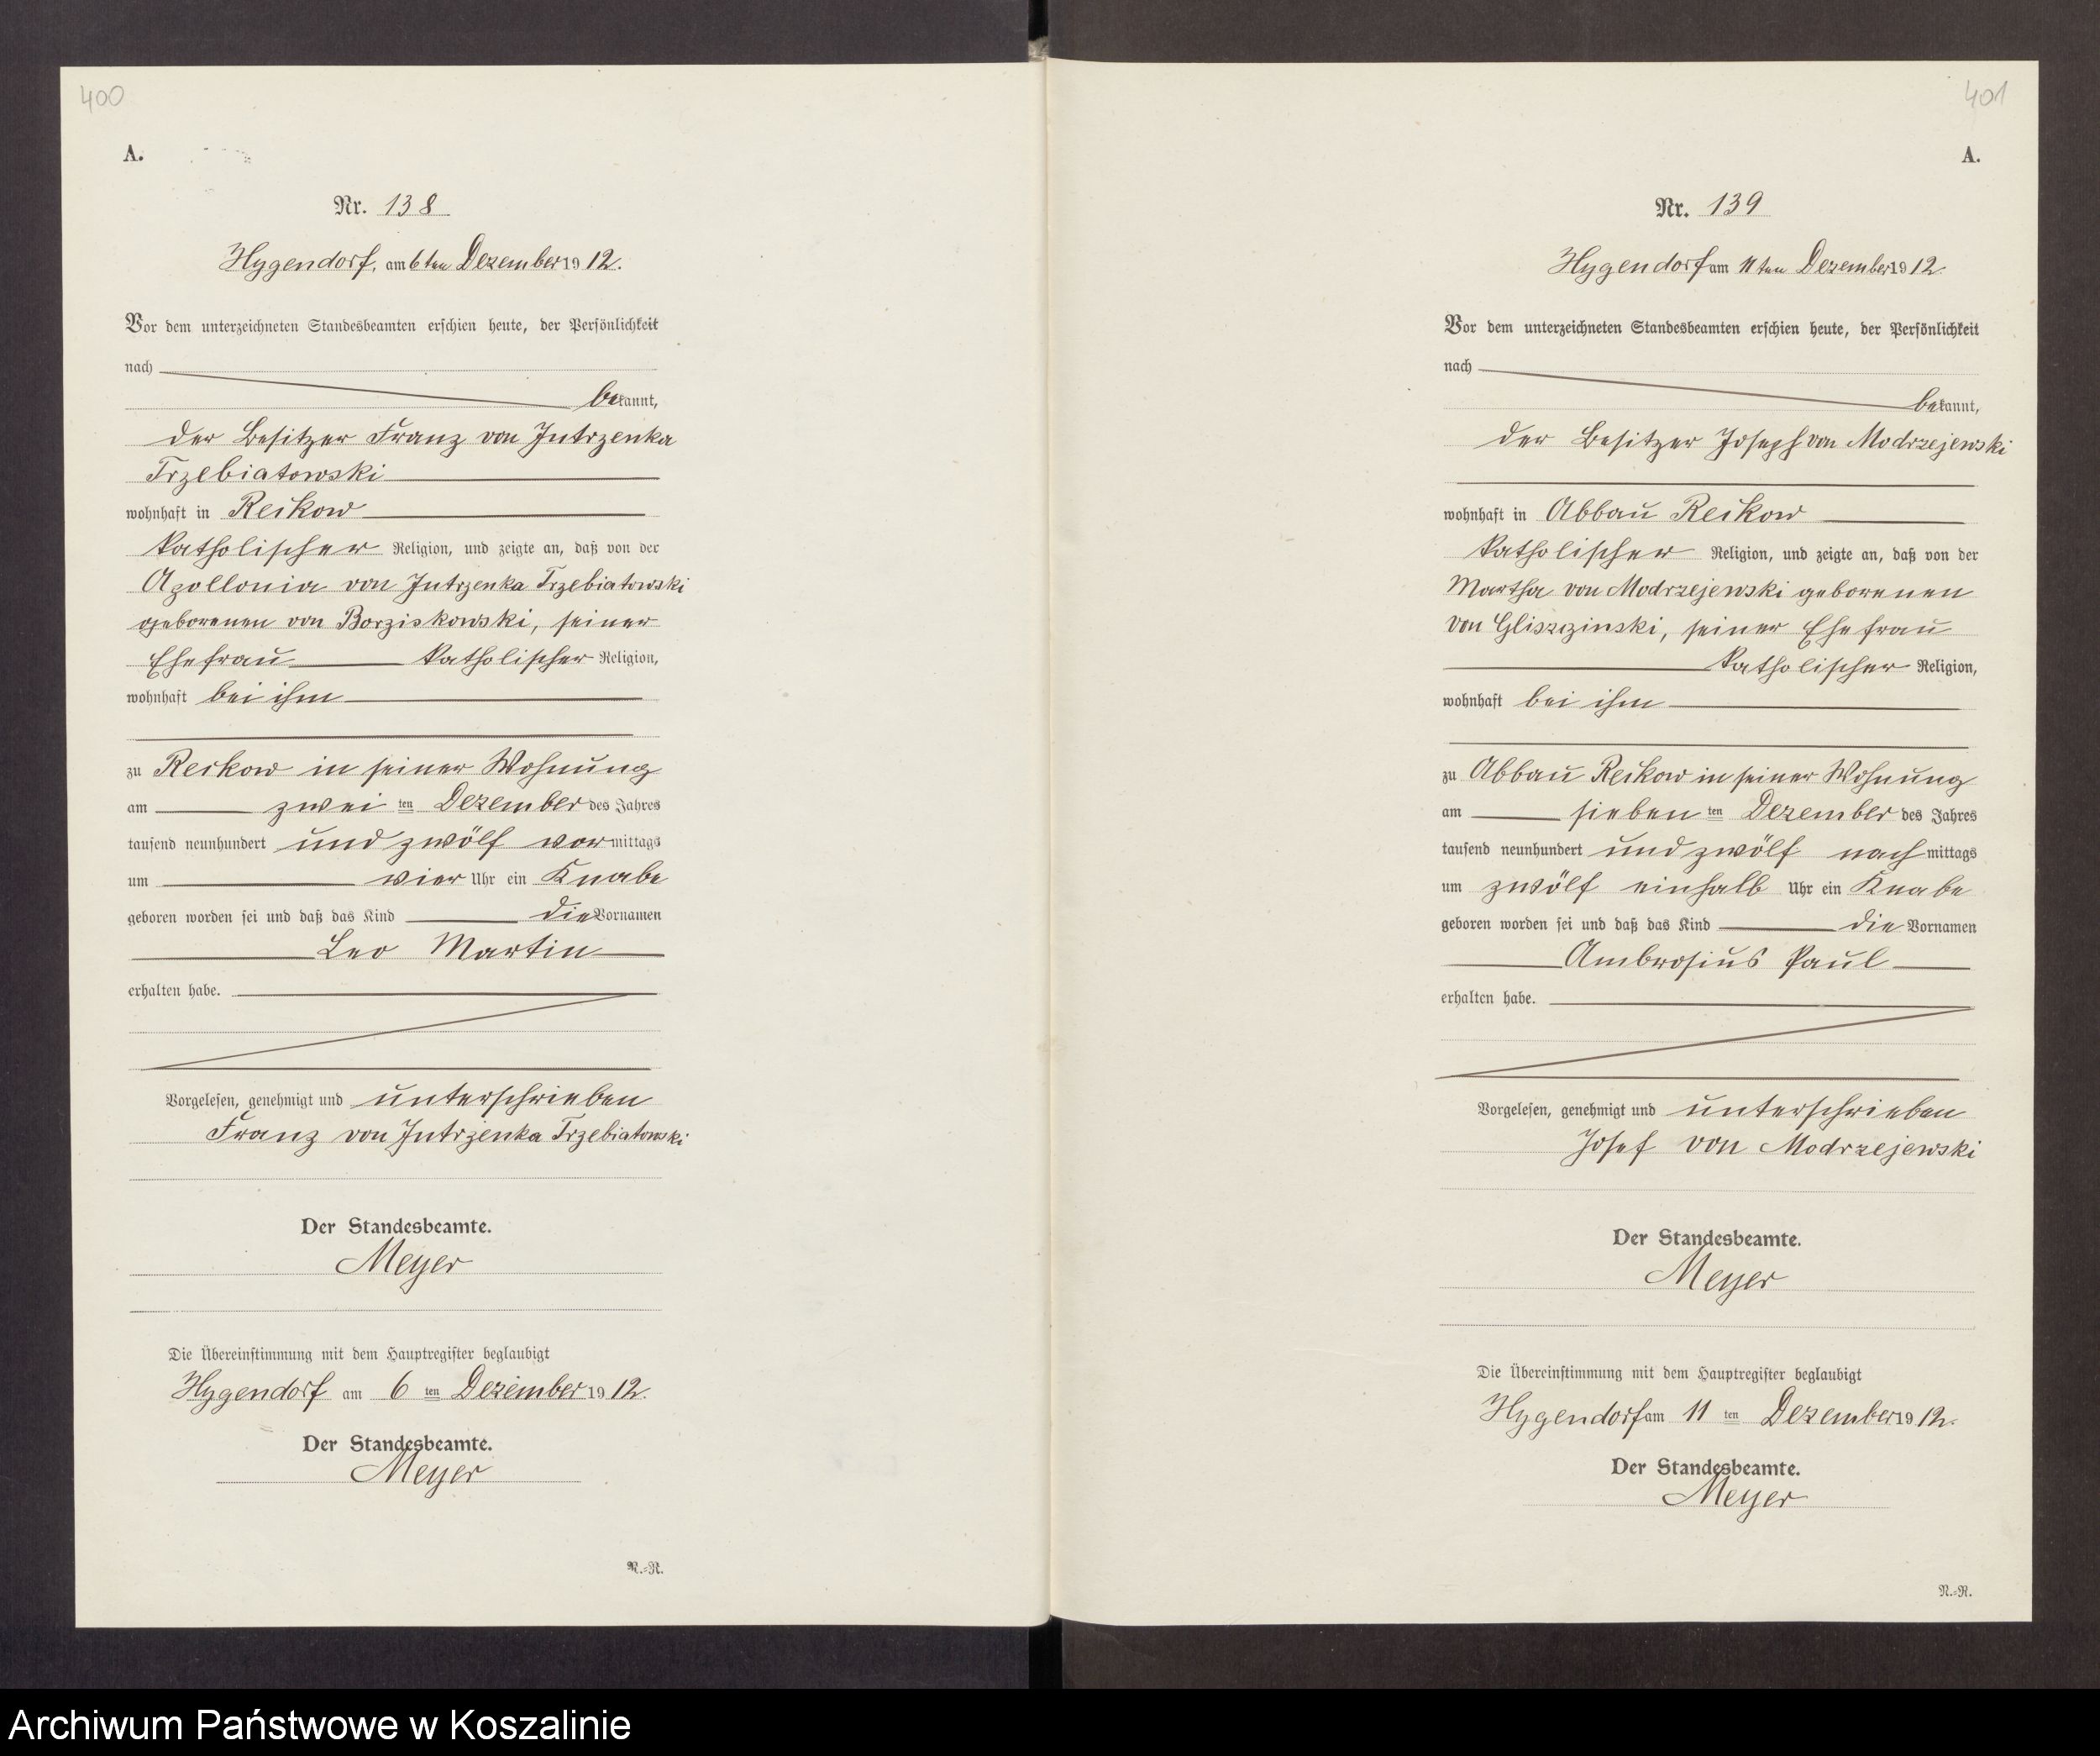 400
A.
Nr. 138
Hygendorf, am 6ten Dezember 1912.
Vor dem unterzeichneten Standesbeamten erschien heute, der Persönlichkeit
nach
bekannt,
der Besitzer Franz von Jutrzenka
Trzebiatowski
wohnhaft in Reikow
katholischer Religion, und zeigte an, daß von der
Apollonia von Jutrzenka Trzebiatowski
geborenen von Borziskowski, seiner
Ehefrau katholischer Religion,
wohnhaft bei ihm
zu Reikow in seiner Wohnung
am zwei ten Dezember des Jahres
tausend neunhundert und zwölf vormittags
um vier Uhr ein Knabe
geboren worden sei und daß das Kind die Vornamen
Leo Martin
erhalten habe.
Vorgelesen, genehmigt und unterschrieben
Franz von Jutrzenka Trzebiatowski
Der Standesbeamte.
Meyer
Die Übereinstimmung mit dem Hauptregister beglaubigt
Hygendorf am 6 ten Dezember 1912.
Der Standesbeamte.
Meyer
N.=R.
401
A.
Nr. 139
Hygendorf am 11ten Dezember 1912.
Vor dem unterzeichneten Standesbeamten erschien heute, der Persönlichkeit
nach
bekannt,
der Besitzer Joseph von Modrzejewski
wohnhaft in Abbau Reikow
katholischer Religion, und zeigte an, daß von der
Martha von Modrzejewski geborenen
von Gliszczinski, seiner Ehefrau
katholischer Religion,
wohnhaft bei ihm
zu Abbau Reikow in seiner Wohnung
am sieben ten Dezember des Jahres
tausend neunhundert und zwölf nachmittags
um zwölf einhalb Uhr ein Knabe
geboren worden sei und daß das Kind die Vornamen
Ambrosius Paul
erhalten habe.
Vorgelesen, genehmigt und unterschrieben
Josef von Modrzejewski
Der Standesbeamte.
Meyer
Die Übereinstimmung mit dem Hauptregister beglaubigt
Hygendorf am 11 ten Dezember 1912.
Der Standesbeamte.
Meyer
N.=R.
Archiwum Państwowe w Koszalinie